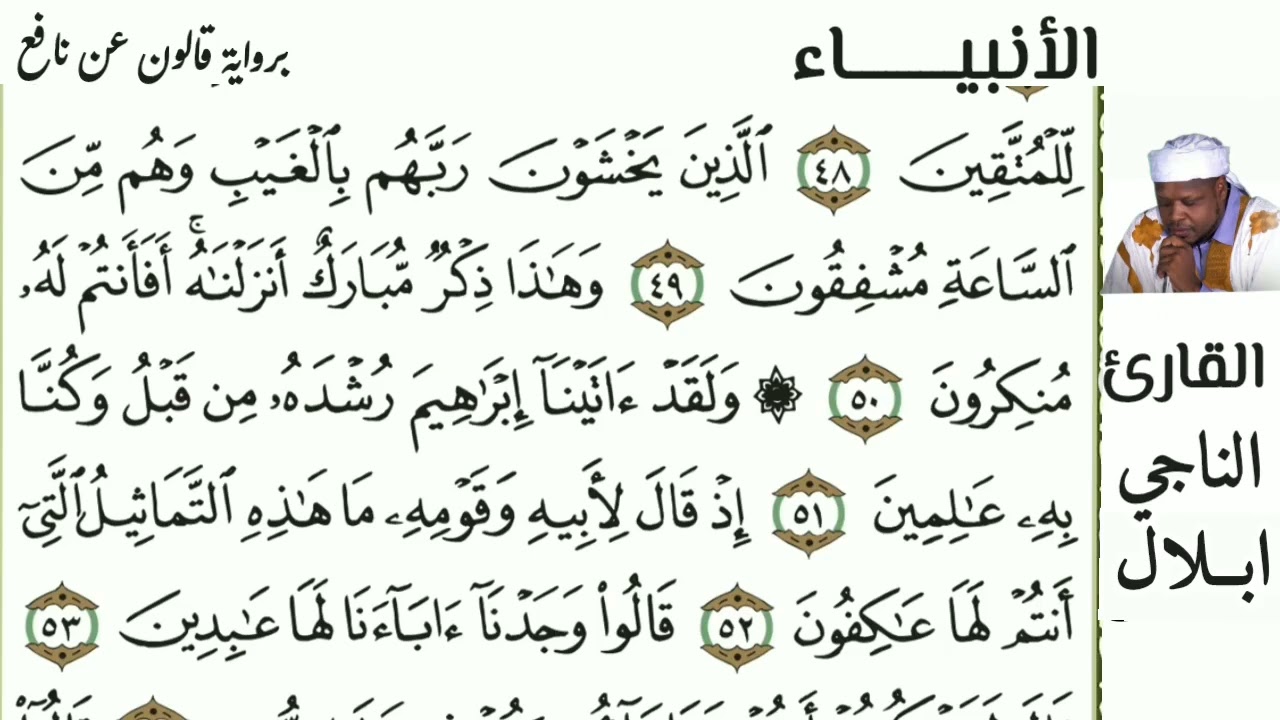 الأنبيـــــاء
برواية قالون عن نافع
لِّلْمُتَّقِينَ ٤٨ ٱلَّذِينَ يَخْشَوْنَ رَبَّهُم بِالْغَيْبِ وَهُم مِّنَ
ٱلسَّاعَةِ مُشْفِقُونَ ٤٩ وَهَٰذَا ذِكْرٌ مُّبَارَكٌ أَنزَلْنَٰهُۚ أَفَأَنتُمْ لَهُۥ
مُنكِرُونَ ٥٠ ۞ وَلَقَدْ ءَاتَيْنَآ إِبْرَٰهِيمَ رُشْدَهُۥ مِن قَبْلُ وَكُنَّا
بِهِۦ عَٰلِمِينَ ٥١ إِذْ قَالَ لِأَبِيهِ وَقَوْمِهِۦ مَا هَٰذِهِ ٱلتَّمَاثِيلُ ٱلَّتِىٓ
أَنتُمْ لَهَا عَٰكِفُونَ ٥٢ قَالُواْ وَجَدْنَآ ءَابَآءَنَا لَهَا عَٰبِدِينَ ٥٣
القارئ
الناجي
ابـلال